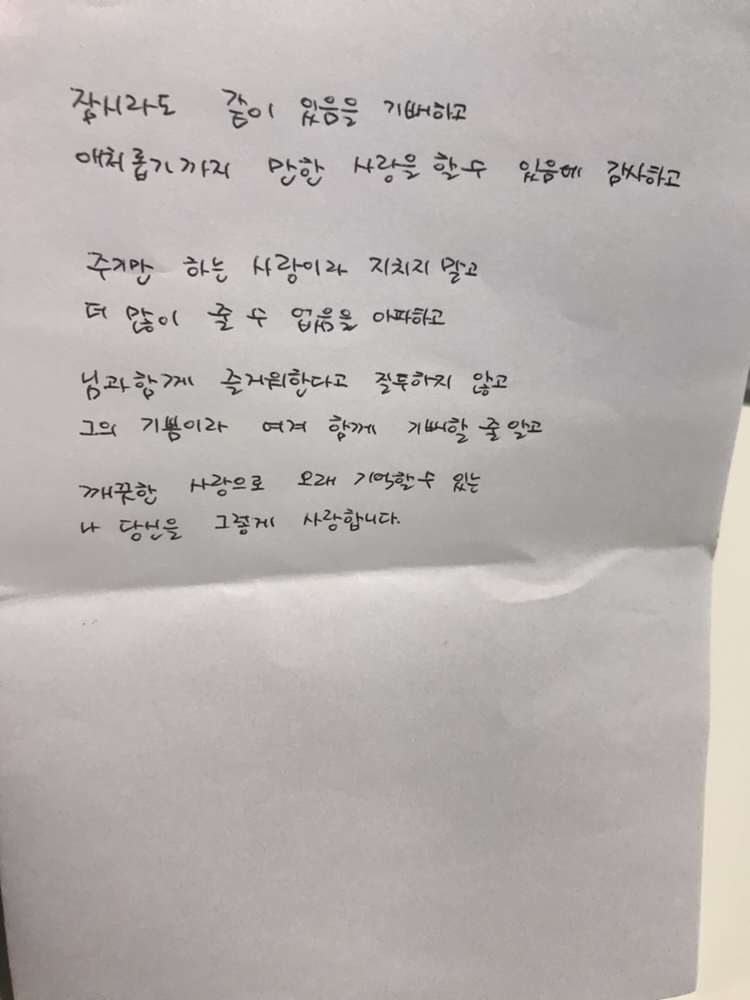 잠시라도 같이 있음을 기뻐하고
애처롭기까지 만한 사랑을 할 수 있음에 감사하고
주기만 하는 사랑이라 지치지 말고
더 많이 줄 수 없음을 아파하고
님과 함께 즐거워한다고 질투하지 않고
그의 기쁨이라 여겨 함께 기뻐할 줄 알고
깨끗한 사랑으로 오래 기억할 수 있는
나 당신을 그렇게 사랑합니다.